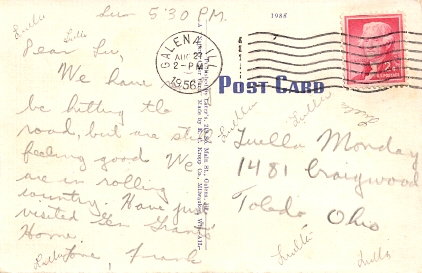 Luella
Sun 5'30 P.M.
Lulle
Dear Lu,
We have
be hitting the
road, but are still
feeling good We
are in rolling
country. Have just
visited Gen Grant's
Home.
Love, Frank
GALENA, ILL.
AUG 27
2-PM
1956
1988
POST CARD
2¢
Luella
Luella
Luella Monday
1481 Craigwood
Toledo Ohio
Luella